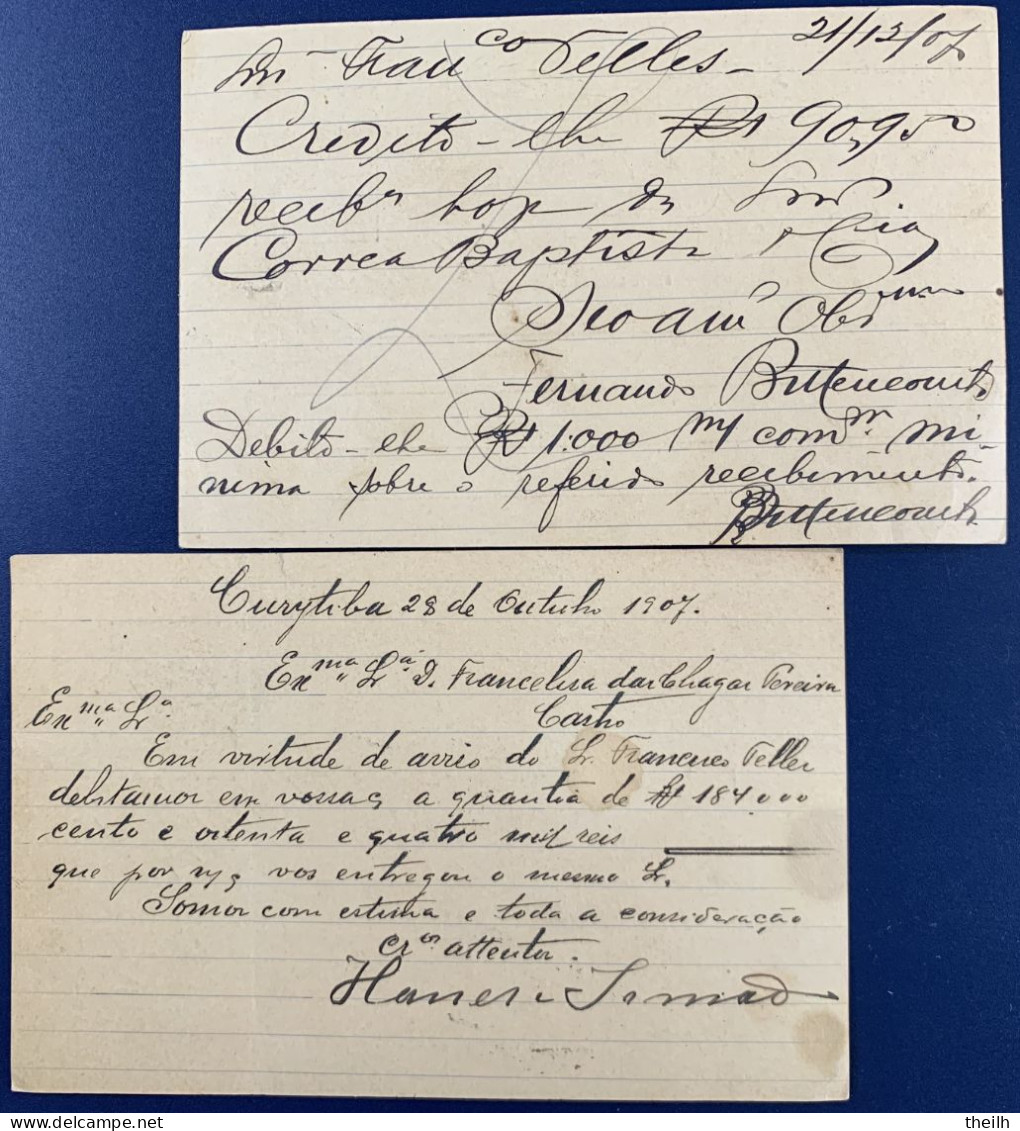 21/12/07
Snr Franco Telles –
Credito-lhe Rs 90,950
recebos hoje de Snrs
Correa Baptista & Cia
Seo amo Obrmo
Fernando Bittencourt
Debito-lhe Rs 1.000 m/ comm. mi-
nima sobre o referido recebimento.
Bittencourt
Curytiba 28 de Outubro 1907.
Exma Sra D. Francelisa das Chagas Pereira
Castro
Exma Sra
Em virtude de aviso do Sr. Francisco Telles
debitamos em vossa c/ a quantia de Rs 184000
cento e oitenta e quatro mil reis
que por n/c vos entregou o mesmo Sr.
Somos com estima e toda a consideração
Cros attentos.
Hauer & Irmão
theilh